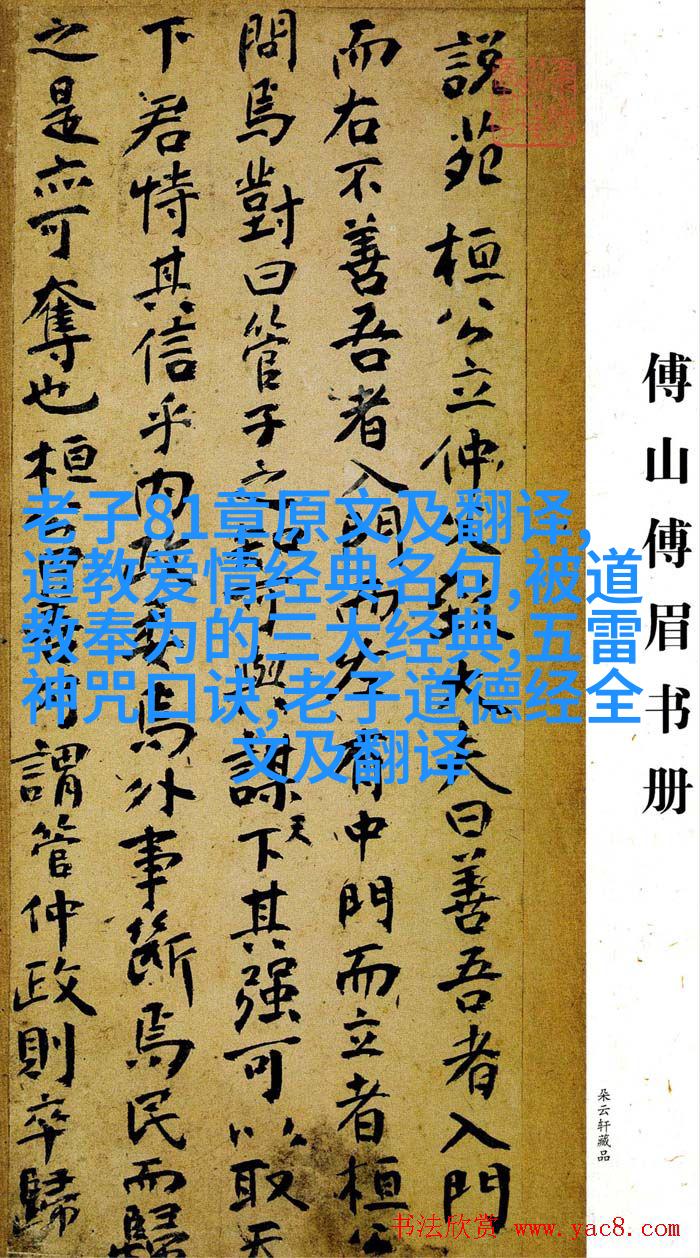 傅山傅眉书册
朵云轩藏品
説苑桓公立仲大夫曰善吾者入門
而右不善吾者入門而左有中門而立者桓公
問焉對曰管子之與謀天下其强可以取天
下君恃其信乎内政委焉外事斷焉民而歸
之是亦可奪也桓公曰謂管仲政則卒歸
老子81章原文及翻译,
道教爱情经典名句,被道
教奉为的三大经典,五雷
神咒口诀,老子道德经全
文及翻译
书法欣赏 www.yac8.com